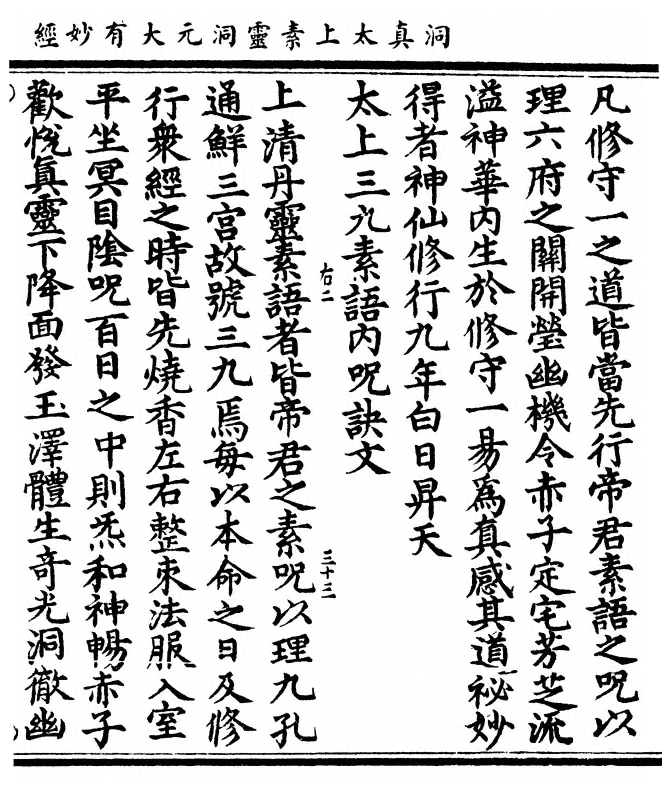 洞真太上素靈洞元大有妙經
凡修守一之道皆當先行帝君素語之呪以
理六府之關開瑩幽機令赤子定宅芳芝流
溢神華內生於修守一易為真感其道祕妙
得者神仙修行九年白日昇天
太上三九素語內呪訣文
右二
三十三
上清丹靈素語者皆帝君之素呪以理九孔
通鮮三宮故號三九焉每以本命之日及修
行衆經之時皆先燒香左右整束法服入室
平坐冥目陰呪一百日之中則炁和神暢赤子
歡悅真靈下降面發玉澤體生奇光洞徹幽